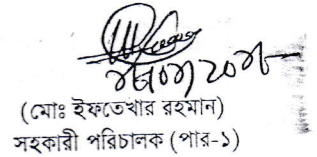 (মোঃ ইফতেখার রহমান)
সহকারী পরিচালক (পার-১)